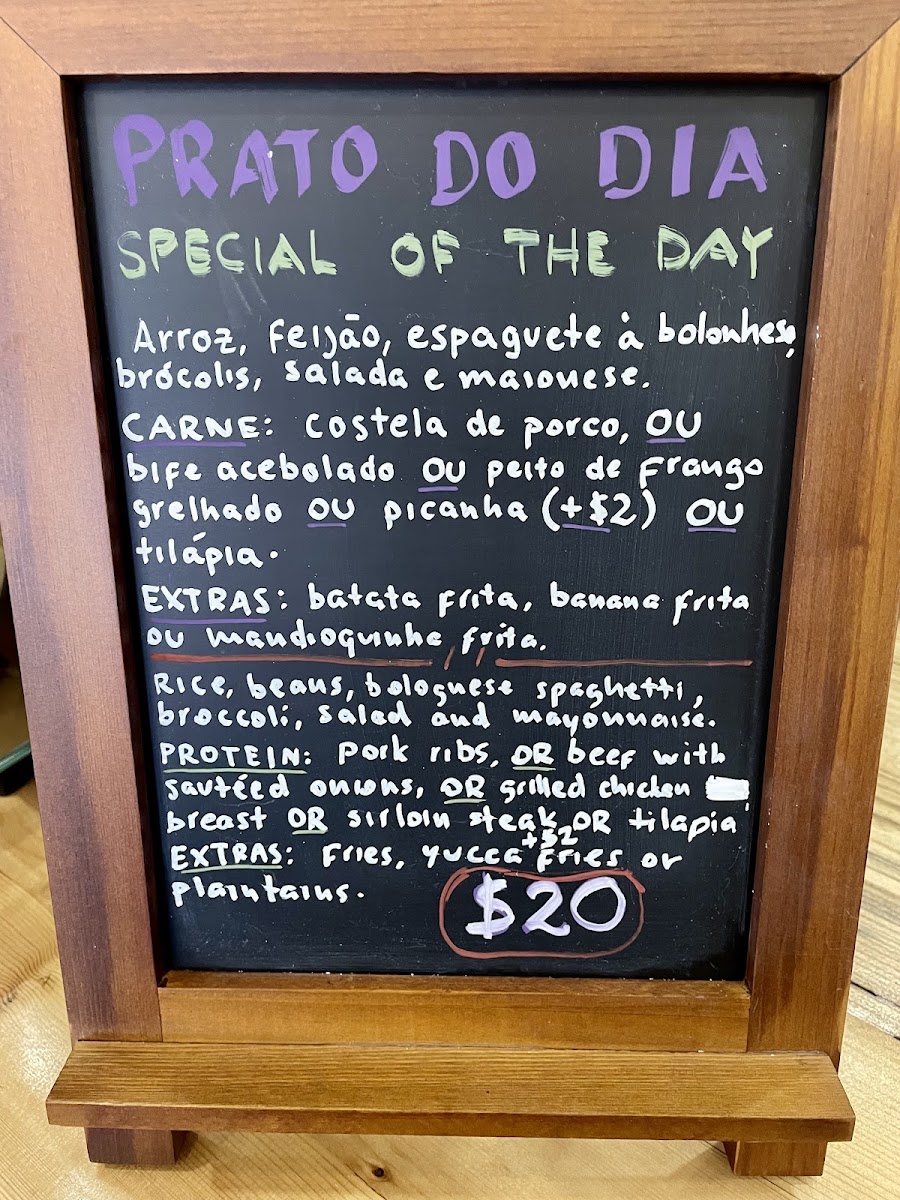 PRATO DO DIA
SPECIAL OF THE DAY
Arroz, feijão, espaguete à bolonhesa,
brócolis, salada e maionese.
CARNE: costela de porco, OU
bife acebolado OU peito de frango
grelhado OU picanha (+$2) OU
tilápia.
EXTRAS: batata frita, banana frita
ou mandioquinha frita.
Rice, beans, bolognese spaghetti,
broccoli, salad and mayonnaise.
PROTEIN: Pork ribs, OR beef with
sautéed onions, OR grilled chicken
breast OR sirloin steak OR tilapia
+$2
EXTRAS: Fries, yucca fries or
plaintains.
$20